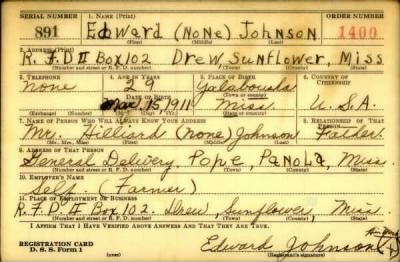 SERIAL NUMBER 1. NAME (Print) ORDER NUMBER
891 Edward (None) Johnson 1400
(First) (Middle) (Last)
2. ADDRESS (Print)
R. F D II Box 102 Drew, Sunflower, Miss
(Number and street or R. F. D. number) (Town) (County) (State)
3. TELEPHONE 4. AGE IN YEARS 5. PLACE OF BIRTH 6. COUNTRY OF CITIZENSHIP
none 29 Yalabousha
DATE OF BIRTH (Town or county)
Mar, 15, 1911 Miss. U. S. A.
(Exchange) (No.) (Mo.) (Day) (Yr.) (State or country)
7. NAME OF PERSON WHO WILL ALWAYS KNOW YOUR ADDRESS 8. RELATIONSHIP OF THAT PERSON
Mr. Hilliard (none) Johnson Father
(Mr., Mrs., Miss) (First) (Middle) (Last)
9. ADDRESS OF THAT PERSON
General Delivery, Pope, Panola, Miss.
(Number and street or R. F. D. number) (Town) (County) (State)
10. EMPLOYER'S NAME
Self. (Farmer)
11. PLACE OF EMPLOYMENT OR BUSINESS
R. F D II Box 102. Drew, Sunflower Miss
(Number and street or R. F. D. number) (Town) (County) (State)
I AFFIRM THAT I HAVE VERIFIED ABOVE ANSWERS AND THAT THEY ARE TRUE.
REGISTRATION CARD
D. S. S. Form 1 (over) Edward Johnson
(Registrant's signature)